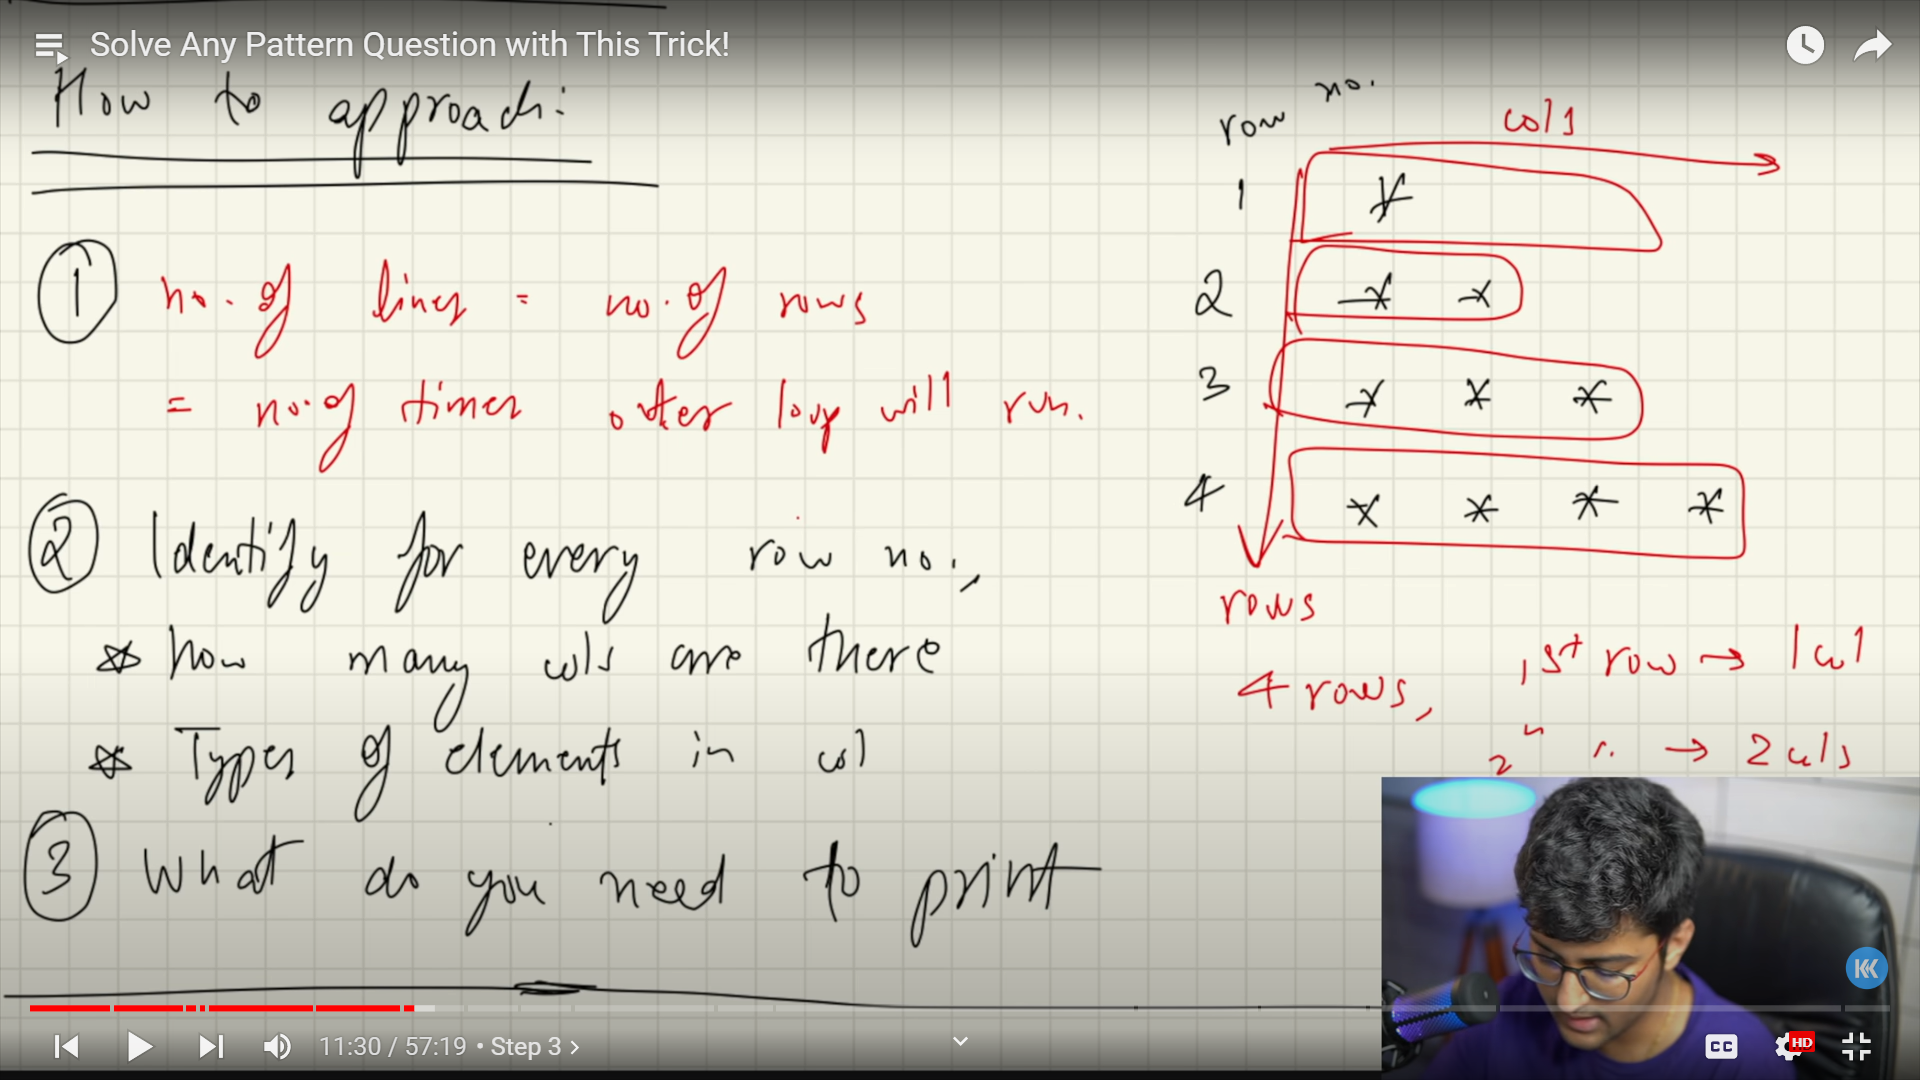 Solve Any Pattern Question with This Trick!
How to approach:
① no. of lines = no. of rows
= no. of times outer loop will run.
② Identify for every row no.,
☆ how many cols are there
☆ Types of elements in col
③ What do you need to print
row no.
cols
1 *
2 * *
3 * * *
4 * * * *
rows
4 rows, 1st row → 1 col
2 → 2 cols
11:30 / 57:19 • Step 3 >
CC
HD